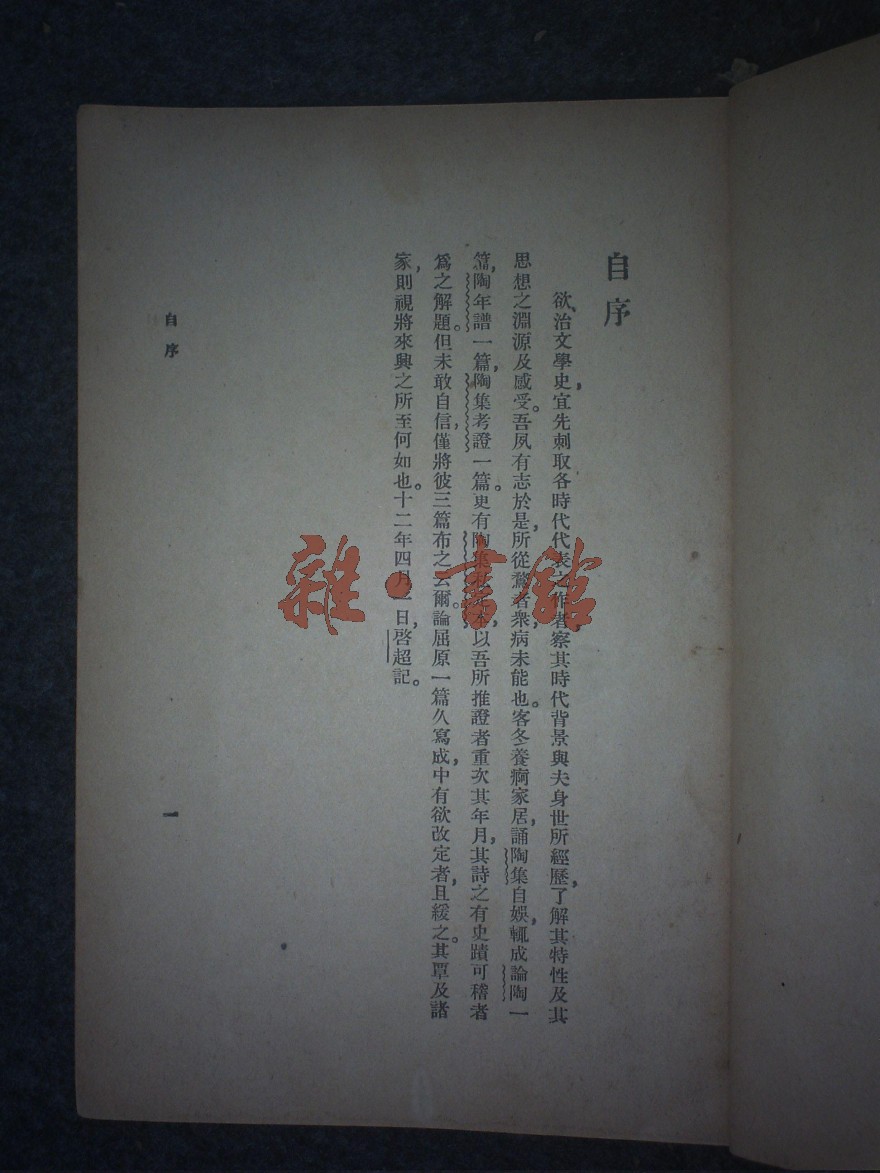 自序
欲治文學史，宜先刺取各時代代表之作者，察其時代背景與夫身世所經歷，了解其特性及其
思想之淵源及感受。吾夙有志於是，所從鶩者衆，病未能也。客冬養痾家居，誦陶集自娛，輒成論陶一
篇，陶年譜一篇，陶集考證一篇。更有陶集私定本，以吾所推證者重次其年月，其詩之有史蹟可稽者
爲之解題。但未敢自信，僅將彼三篇布之云爾。論屈原一篇久寫成，中有欲改定者，且緩之。其覃及諸
家，則視將來興之所至何如也。十二年四月一日，啓超記。
自序
一
雜·書館